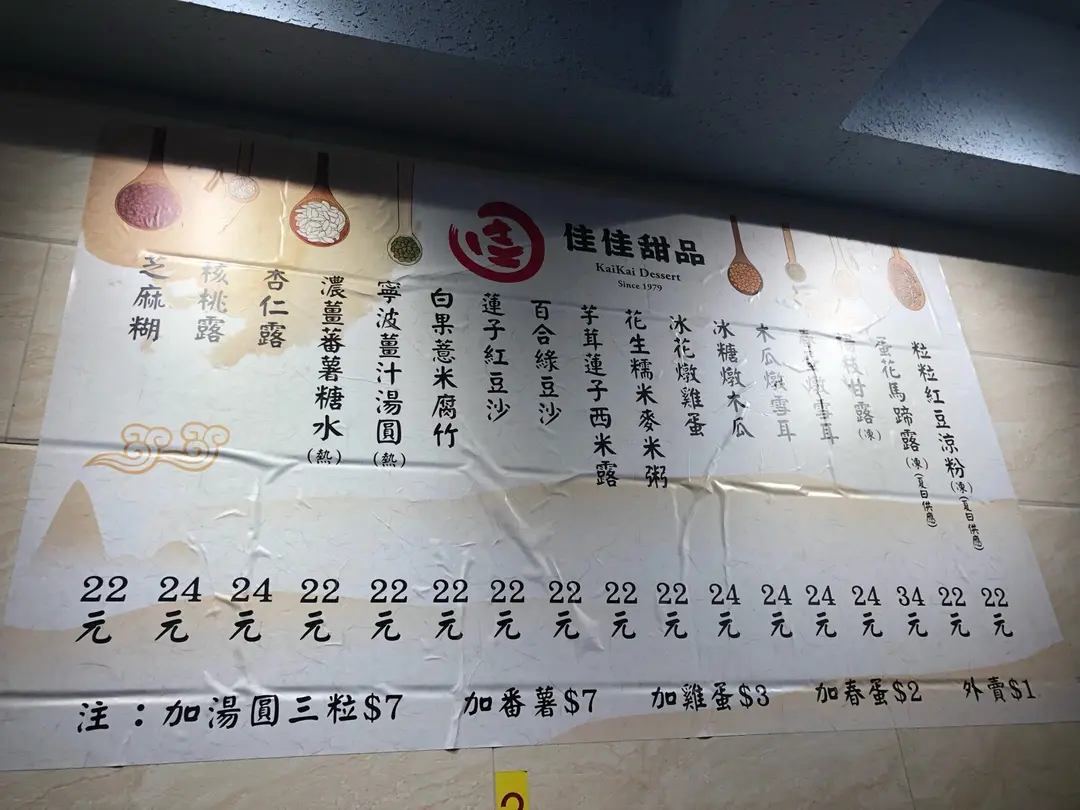 佳佳甜品
KaiKai Dessert
Since 1979
芝麻糊
核桃露
杏仁露
濃薑蕃薯糖水(熱)
寧波薑汁湯圓(熱)
白果薏米腐竹
蓮子紅豆沙
百合綠豆沙
芋茸蓮子西米露
花生糯米麥米粥
冰花燉雞蛋
冰糖燉木瓜
木瓜燉雪耳
燉雪耳
枝甘露(凍)
蛋花馬蹄露(凍)(夏日供應)
粒粒紅豆涼粉(凍)(夏日供應)
22元 24元 24元 22元 22元 22元 22元 22元 22元 22元 24元 24元 24元 24元 34元 22元 22元
注：加湯圓三粒$7 加番薯$7 加雞蛋$3 加春蛋$2 外賣$1